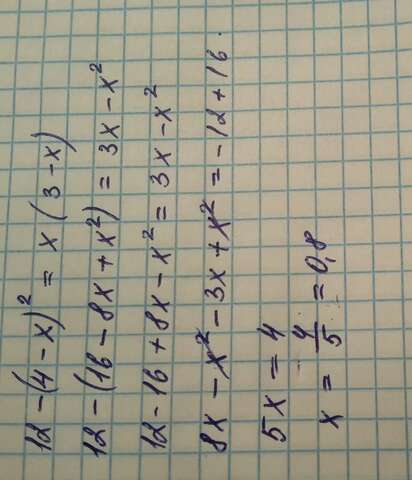 12 - (4 - x)² = x (3 - x)
12 - (16 - 8x + x²) = 3x - x²
12 - 16 + 8x - x² = 3x - x²
8x - x² - 3x + x² = -12 + 16.
5x = 4
x = 4/5 = 0,8